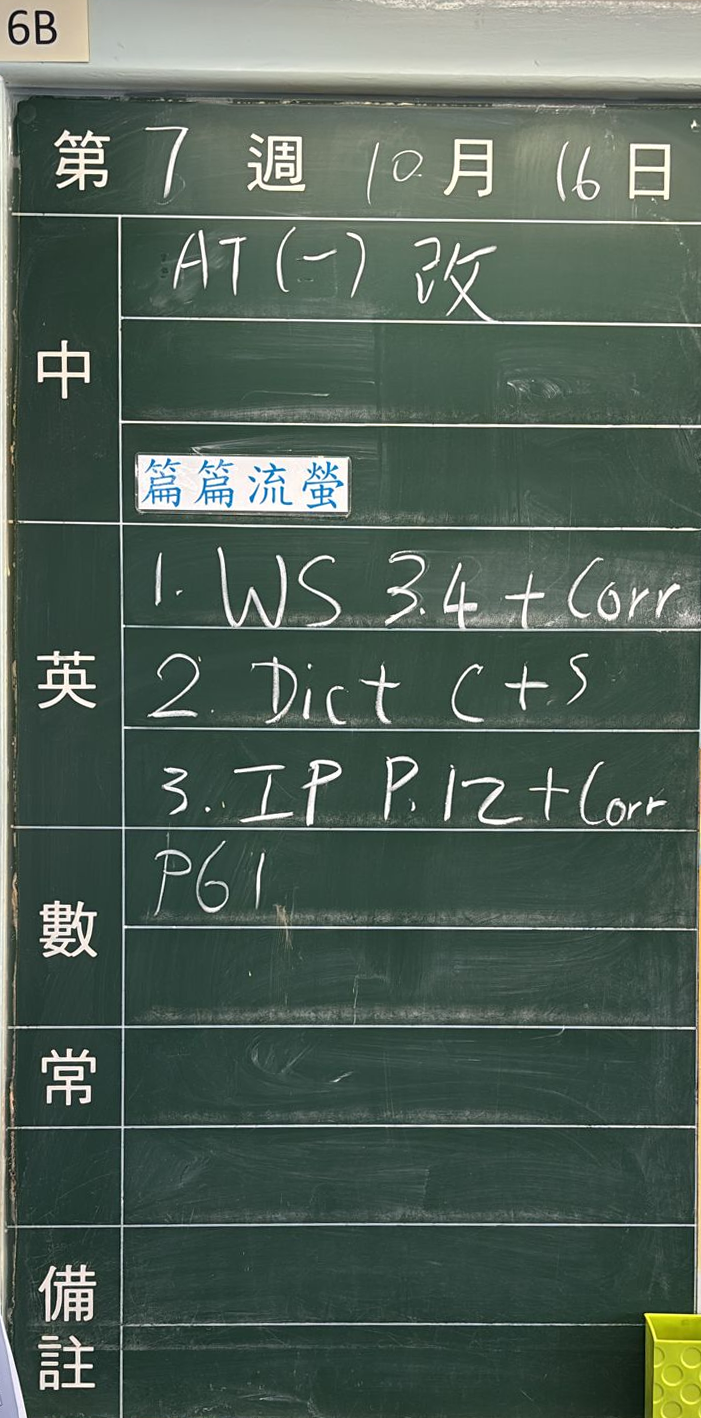 6B
第 7 週 10 月 16 日
中
AT (一) 改
篇篇流螢
英
1. WS 3.4 + Corr
2. Dict C + S
3. IP P.12 + Corr
數
P61
常
備註